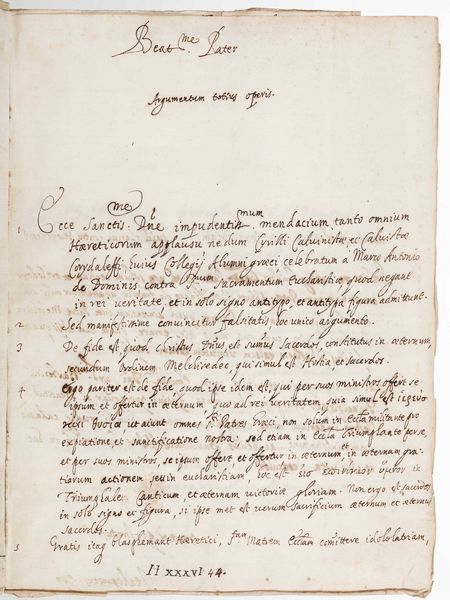 Beat.me Pater
Argumentum totius operis.
1 Ecce Sanctis.me Dne impudentissmum mendacium tanto omnium
Haereticorum applausu nedum Cyrilli Calvinistae, et Calvistae
Corydaleffi Collegij Alumni graeci celebratum a Marco Antonio
de Dominis contra Sacramentum Eucharistiae quod negant
in rei veritate, et in solo signo antitypo, et antitypa figura admittunt.
2 Sed manifestissime convincitur falsitatis hoc unico argumento.
3 De fide est, quod Christus Dnus est sumus sacerdos, constitutus in aeternum,
secundum ordinem Melchisedec, qui simul est Hostia et sacerdos.
4 Ergo pariter est de fide, quod ipse idem est, qui per suos ministros offert se
ipsum et offertur in aeternum, quo ad rei veritatem, quia simul est
ut aiunt omnes sti Patres Graeci non solum in Eccla militante pro
expiatione et sanctificatione nostra, sed etiam in Eccla Triumphante per se,
et per suos ministros, se ipsum offert et offertur in aeternum, in aeternam gra-
tiarum actionem seu in eucharistiam, hoc est
Triumphale Canticum, et aeternam victoriae gloriam. Non ergo est sacerdos
in solo signo et figura, si ipse met est verum sacrificium aeternum et aeternus
sacerdos.
5 Gratis itaq blasphemant Haeretici, Matrem Ecclam comittere idololatriam,
II xxxvI 44.